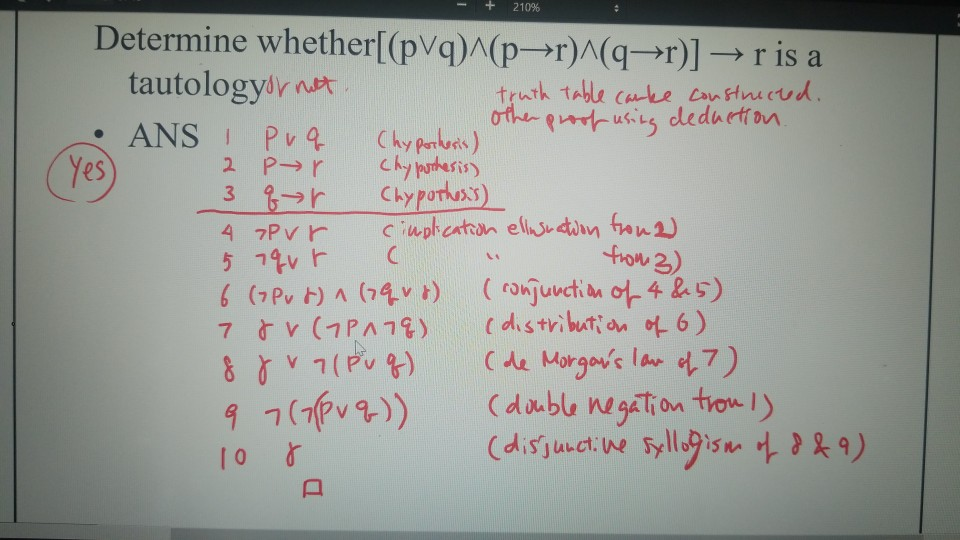 210%
Determine whether[(p∨q)∧(p→r)∧(q→r)] → r is a
tautology or not.
truth table can be constructed.
other proof using deduction
• ANS
Yes
1 p ∨ q (hypothesis)
2 p → r (hypothesis)
3 q → r (hypothesis)
4 ¬p ∨ r (implication from 2)
5 ¬q ∨ r ( " from 3)
6 (¬p ∨ r) ∧ (¬q ∨ r) (conjunction of 4 & 5)
7 r ∨ (¬p ∧ ¬q) (distribution of 6)
8 r ∨ ¬(p ∨ q) (de Morgan's law of 7)
9 ¬(¬(p ∨ q)) (double negation from 1)
10 r (disjunctive syllogism of 8 & 9)
□